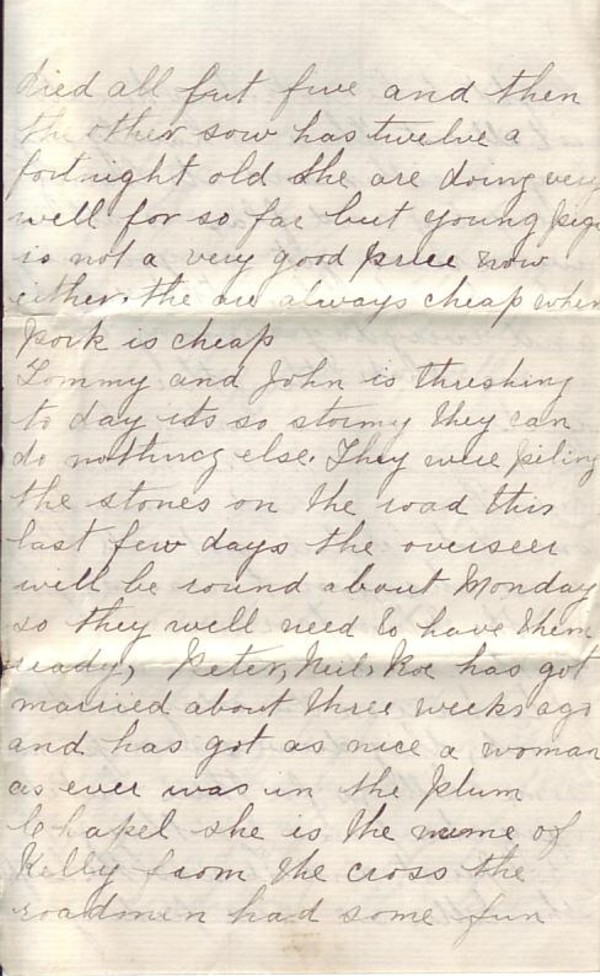 died all but five and then
the other sow has twelve a
fortnight old the are doing very
well for so far but young pigs
is not a very good price now
either. the are always cheap when
pork is cheap
Tommy and John is threshing
to day its so stormy they can
do nothing else. They were piling
the stones on the road this
last few days the overseer
will be round about Monday
so they well need to have them
ready, Peter, Neil, Roe has got
married about three weeks ago
and has got as nice a woman
as ever was in the plum
Chapel she is the name of
Kelly from the cross the
roadmen had some fun